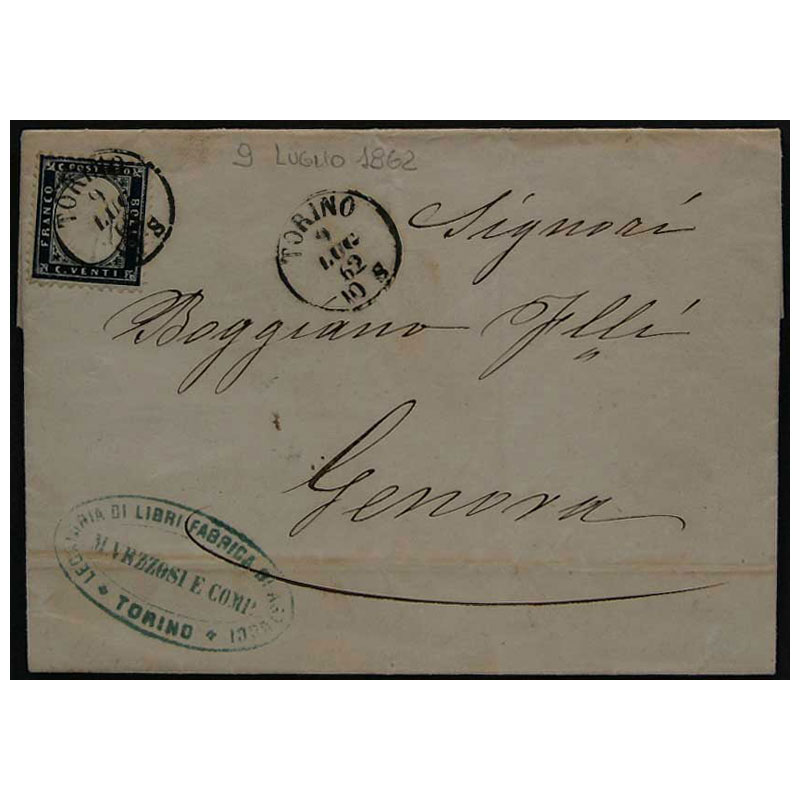 9 LUGLIO 1862
C. POST
FRANCO
BOLLO
C. VENTI
TORINO
9
LUG
S
TORINO
9
LUG
62
10 S
Signori
Boggiano Flli
Genova
LEGATORIA DI LIBRI FABRICA DI
M. VEZZOSI E COMP.
* TORINO *